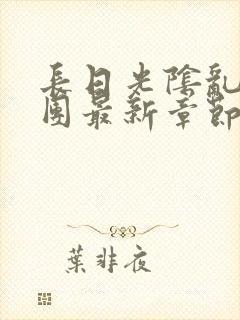 長日光陰亂
團最新章節
葉非夜